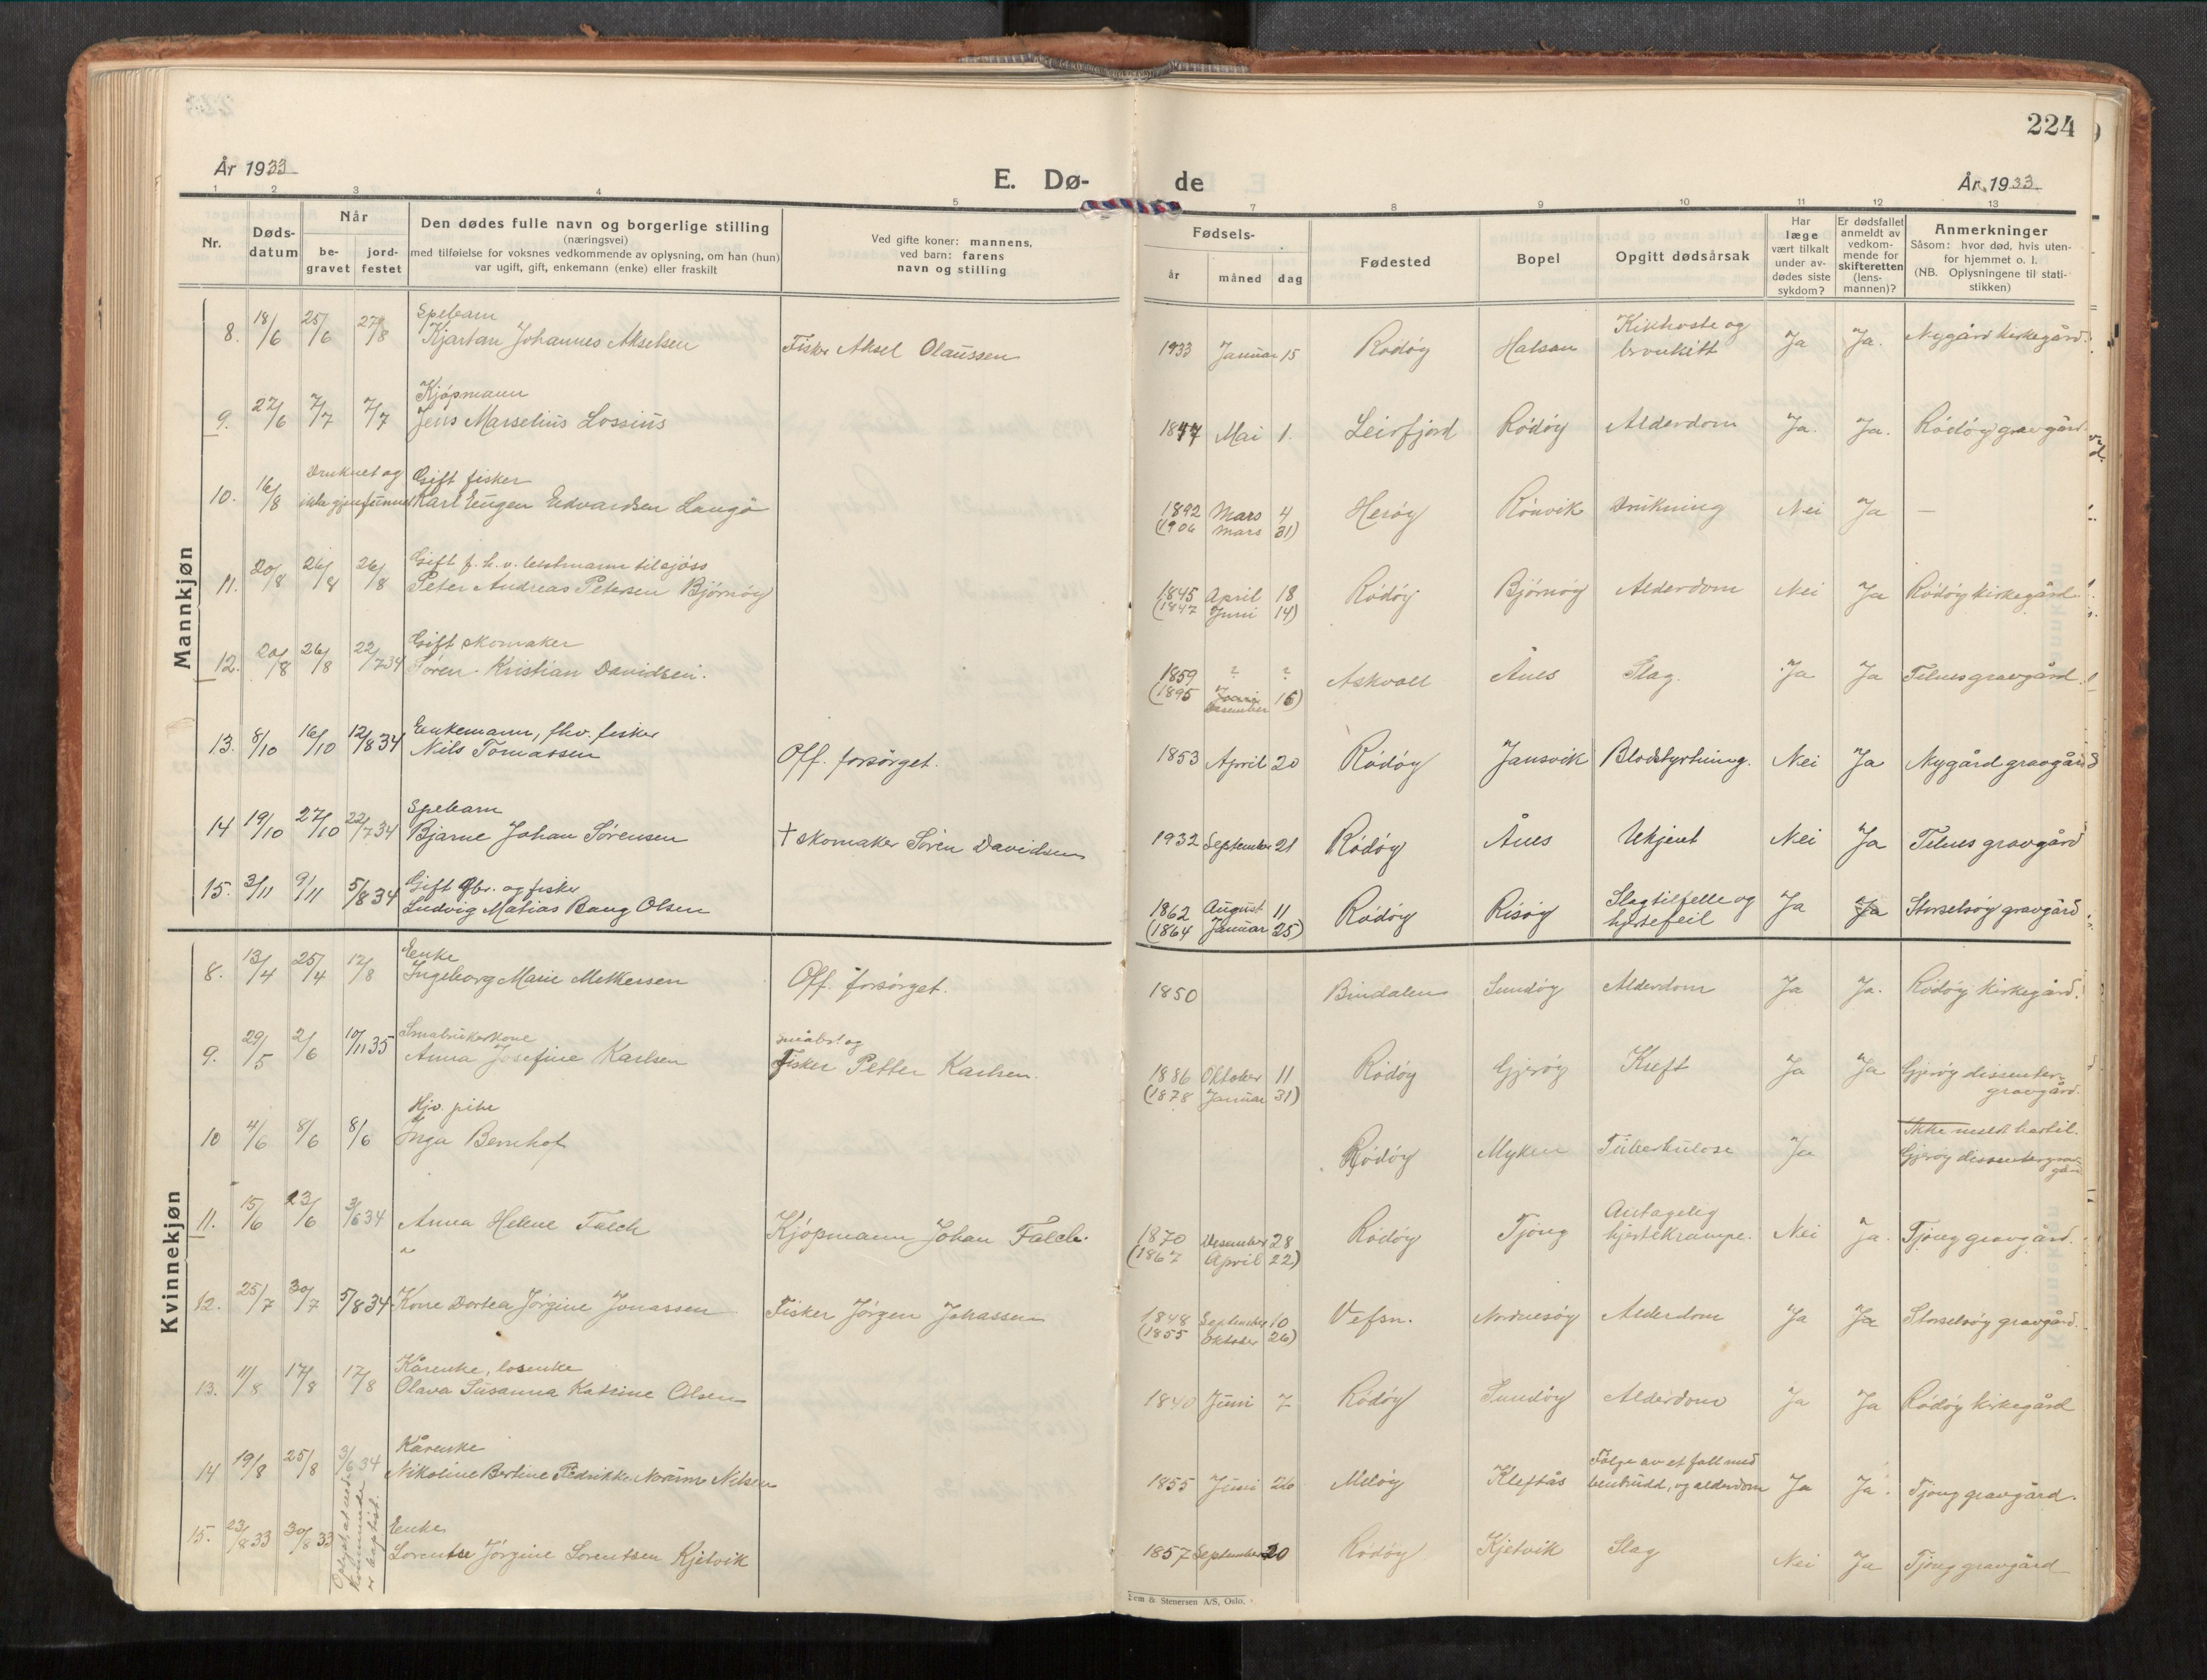 224
År 1933
E. Dø-
de
År 1933
1 2 3 4 5 7 8 9 10 11 12 13
Nr.
Døds-
datum
Når
be-
gravet
jord-
festet
Den dødes fulle navn og borgerlige stilling
(næringsvei)
med tilføielse for voksnes vedkommende av oplysning, om han (hun)
var ugift, gift, enkemann (enke) eller fraskilt
Ved gifte koner: mannens,
ved barn: farens
navn og stilling
Fødsels-
år måned dag
Fødested
Bopel
Opgitt dødsårsak
Har
læge
vært tilkalt
under av-
dødes siste
sykdom?
Er dødsfallet
anmeldt av
vedkom-
mende for
skifteretten
(lens-
mannen)?
Anmerkninger
Såsom: hvor død, hvis uten-
for hjemmet o. l.
(NB. Oplysningene til stati-
stikken)
Mannkjøn
Spebarn
8. 18/6 25/6 27/8 Kjartan Johannes Akselsen Fisker Aksel Olaussen 1933 Januar 15 Rødøy Halsan Kikhoste og bronkitt Ja Ja. Nygård kirkegård.
Kjøpmann
9. 27/6 7/7 7/7 Jens Marselius Lossius 1847 Mai 1. Leirfjord Rødøy Alderdom Ja. Ja. Rødøy gravgård.
Druknet og Gift fisker
10. 16/8 ikke gjenfunnet Karl Eugen Edvardsen Langå 1892 Mars 4 Herøy Rønvik Drukning Nei Ja —
(1906 Mars 31)
Gift f. h. v. bestmann tilsjøss
11. 20/8 26/8 26/8 Peter Andreas Petersen Bjørnøy 1845 April 18 Rødøy Bjørnøy Alderdom Nei Ja Rødøy kirkegård.
(1847 Juni 14)
Gift skomaker
12. 20/8 26/8 22/7 34 Søren Kristian Davidsen. 1859 ? ? Askvoll Ånes Slag. Ja Ja Telnes gravgård.
(1895 Desember 16)
Enkemann, fhv. fisker
13. 8/10 16/10 12/8 34 Nils Tomassen Off. forsørget. 1853 April 20 Rødøy Jansvik Blodstyrtning. Nei Ja Nygård gravgård
Spebarn
14 19/10 27/10 22/7 34 Bjarne Johan Sørensen † skomaker Søren Davidsen 1932 September 21 Rødøy Ånes Ukjent Nei Ja Telnes gravgård
Gift gbr. og fisker
15. 3/11 9/11 5/8 34 Ludvig Matias Bang Olsen 1862 August 11 Rødøy Risøy Slagtilfelle og hjertefeil Ja Ja Storselsøy gravgård
(1864 Januar 25)
Kvinnekjøn
Enke
8. 13/4 25/4 12/8 Ingeborg Marie Mikkersen Off. forsørget. 1850 Bindalen Sundøy Alderdom Ja Ja. Rødøy kirkegård.
Småbrukerkone småbr. og
9. 29/5 2/6 10/11 35 Anna Josefine Karlsen Fisker Petter Karlsen. 1886 Oktober 11 Rødøy Gjerøy Kreft Ja Ja Gjerøy dissenter-
(1878 Januar 31) gravgård.
Hjv. pike Ikke meldt hertil.
10 4/6 8/6 8/6 Inga Bernhof Rødøy Myken Tuberkulose Ja Gjerøy dissentergrav-
gård
11. 15/6 23/6 3/6 34 Anna Helene Falch Kjøpmann Johan Falch. 1870 Desember 28 Rødøy Tjong Antagelig hjertekrampe. Nei Ja. Tjong gravgård.
(1867 April 22)
12. 25/7 30/7 5/8 34 Kone Dortea Jørgine Jonassen Fisker Jørgen Johassen 1848 September 10 Vefsn. Nordnesøy Alderdom Ja Ja Storselsøy gravgård.
(1855 Oktober 26)
Kårenke, losenke
13. 11/8 17/8 17/8 Olava Susanna Katrine Olsen 1840 Juni 7 Rødøy Sundøy Alderdom Ja Ja Rødøy kirkegård
Kårenke
14 19/8 25/8 3/6 34 Nikoline Bertine Fredrikke Norum Nilsen 1855 Juni 26 Meløy Kleftås Følge av et fall med benbrudd, og alderdom Ja Ja. Tjong gravgård.
Enke
15. 23/8 33 30/8 33 Lorentse Jørgine Lorentsen Kjelvik 1857 September 20 Rødøy Kjelvik Slag Nei Ja Tjong gravgård
Oplyst at ved-
kommende
er baptist.
Sem & Stenersen A/S, Oslo.